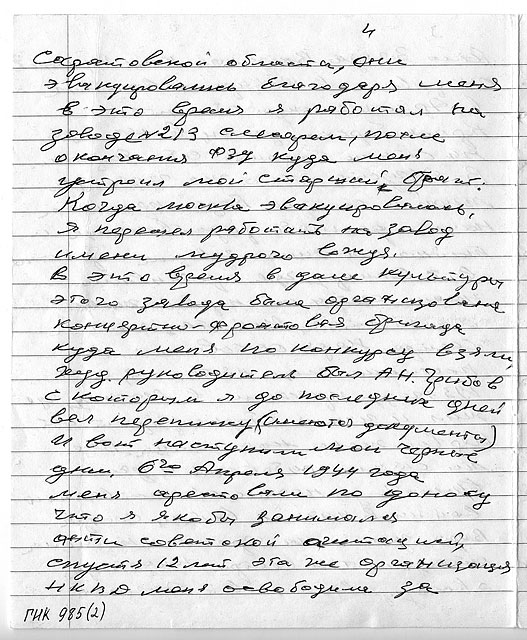 4
Саратовской области, они
эвакуировались благодаря меня
в это время я работал на
заводе №213 слесарем, после
окончания ФЗУ куда меня
устроил мой старший брат.
Когда москва эвакуировалась,
я перешел работать на завод
имени мудрого вождя.
В это время в доме культуры
этого завода была организована
концертно-фронтовая бригада
куда меня по конкурсу взяли,
худ. руководителем был А.Н. Грибов
с которым я до последних дней
вел переписку (имеются документы)
И вот наступили мои черные
дни. 6го Апреля 1944 года
меня арестовали по доносу
что я якобы занимался
анти советской агитацией,
спустя 12 лет эта же организация
НКВД меня освободила за
ГНК 985(2)